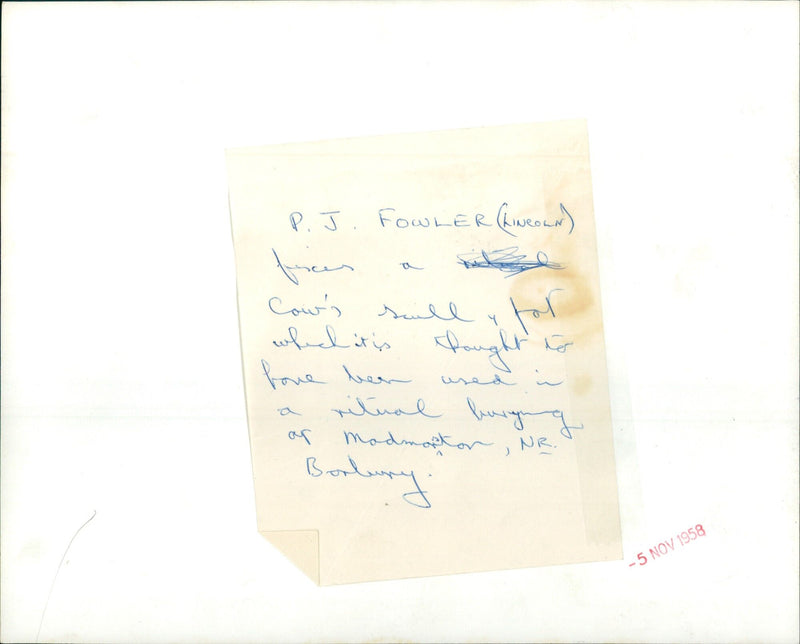 P. J. FOWLER (LINCOLN)
fixes a
Cow's skull & pot
which it is thought to
have been used in
a ritual burying
at Madmarston, NR.
Banbury.
-5 NOV 1958